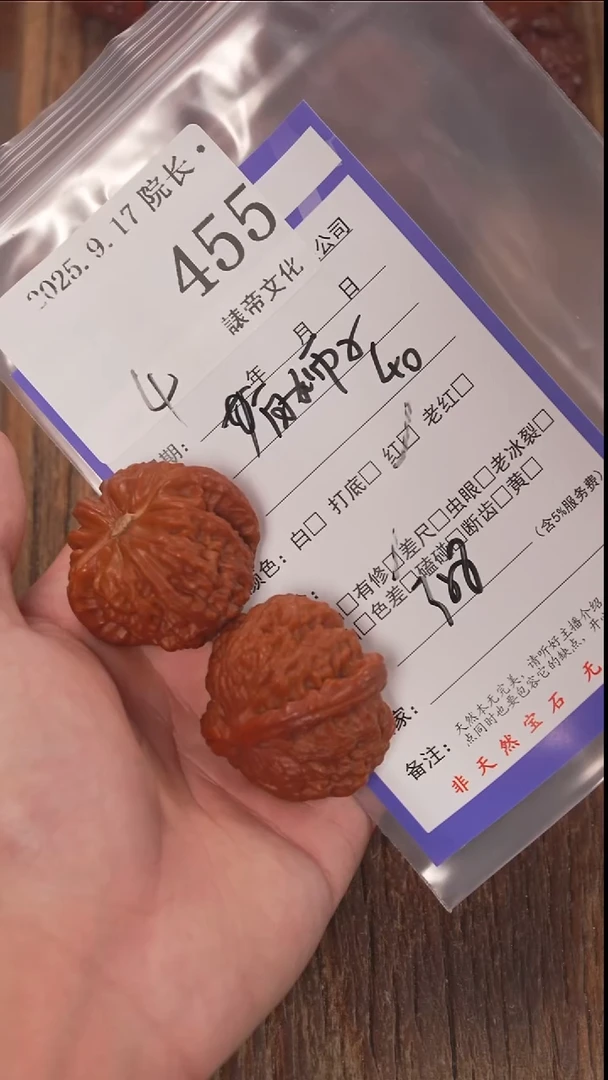 2025.9.17 院长
455
謎帝文化 公司
4
年 月 日
期:
40
颜色: 白□ 打底□ 红□ 老红□
□有修□差尺□虫眼□老冰裂□
□色差□磕碰□断齿□黄□
(含5%服务费)
家:
备注: 天然本无完美, 请听好主播介绍
点同时也要包容它的缺点, 开
非天然宝石 无